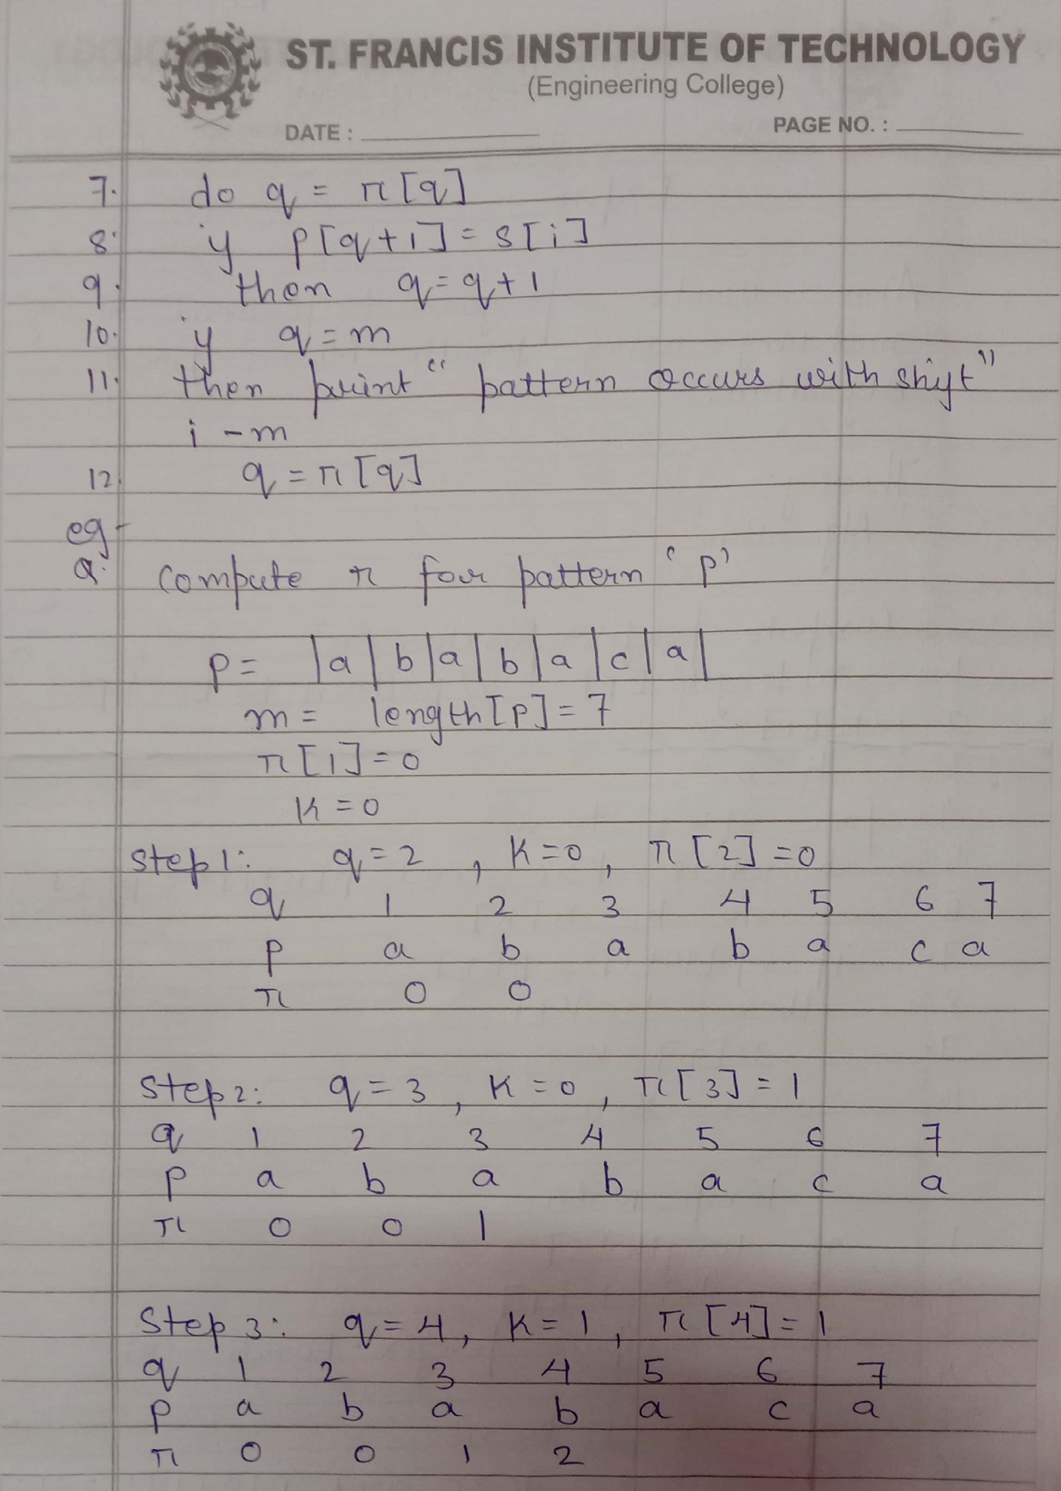 ST. FRANCIS INSTITUTE OF TECHNOLOGY
(Engineering College)
DATE : PAGE NO. :
7. do q = π[q]
8. if p[q+1] = s[i]
9. then q = q+1
10. if q = m
11. then print "pattern occurs with shift"
i - m
12. q = π[q]
eg -
Q. compute π for pattern 'p'
p = |a|b|a|b|a|c|a|
m = length[p] = 7
π[1] = 0
K = 0
step 1: q = 2, K = 0, π[2] = 0
q 1 2 3 4 5 6 7
p a b a b a c a
π 0 0
Step 2: q = 3, K = 0, π[3] = 1
q 1 2 3 4 5 6 7
p a b a b a c a
π 0 0 1
Step 3: q = 4, K = 1, π[4] = 1
q 1 2 3 4 5 6 7
p a b a b a c a
π 0 0 1 2